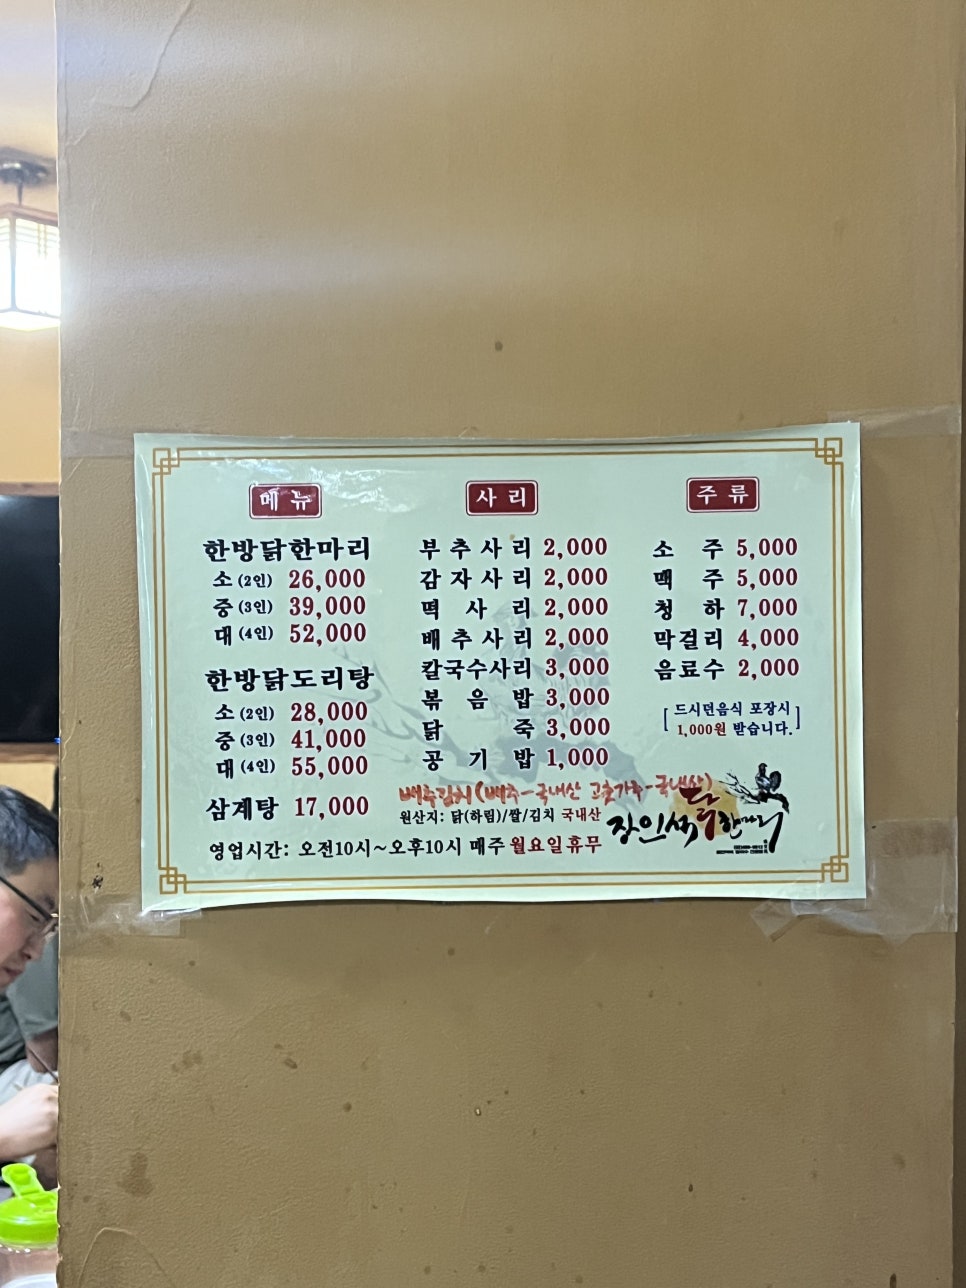 메뉴
한방닭한마리
소(2인) 26,000
중(3인) 39,000
대(4인) 52,000
한방닭도리탕
소(2인) 28,000
중(3인) 41,000
대(4인) 55,000
삼계탕 17,000
사리
부추사리 2,000
감자사리 2,000
떡사리 2,000
배추사리 2,000
칼국수사리 3,000
볶음밥 3,000
닭죽 3,000
공기밥 1,000
주류
소주 5,000
맥주 5,000
청하 7,000
막걸리 4,000
음료수 2,000
[드시던음식 포장시
1,000원 받습니다.]
배추김치(배추-국내산 고춧가루-국내산)
원산지: 닭(하림)/쌀/김치 국내산
영업시간: 오전10시~오후10시 매주 월요일휴무
장인석닭한마리